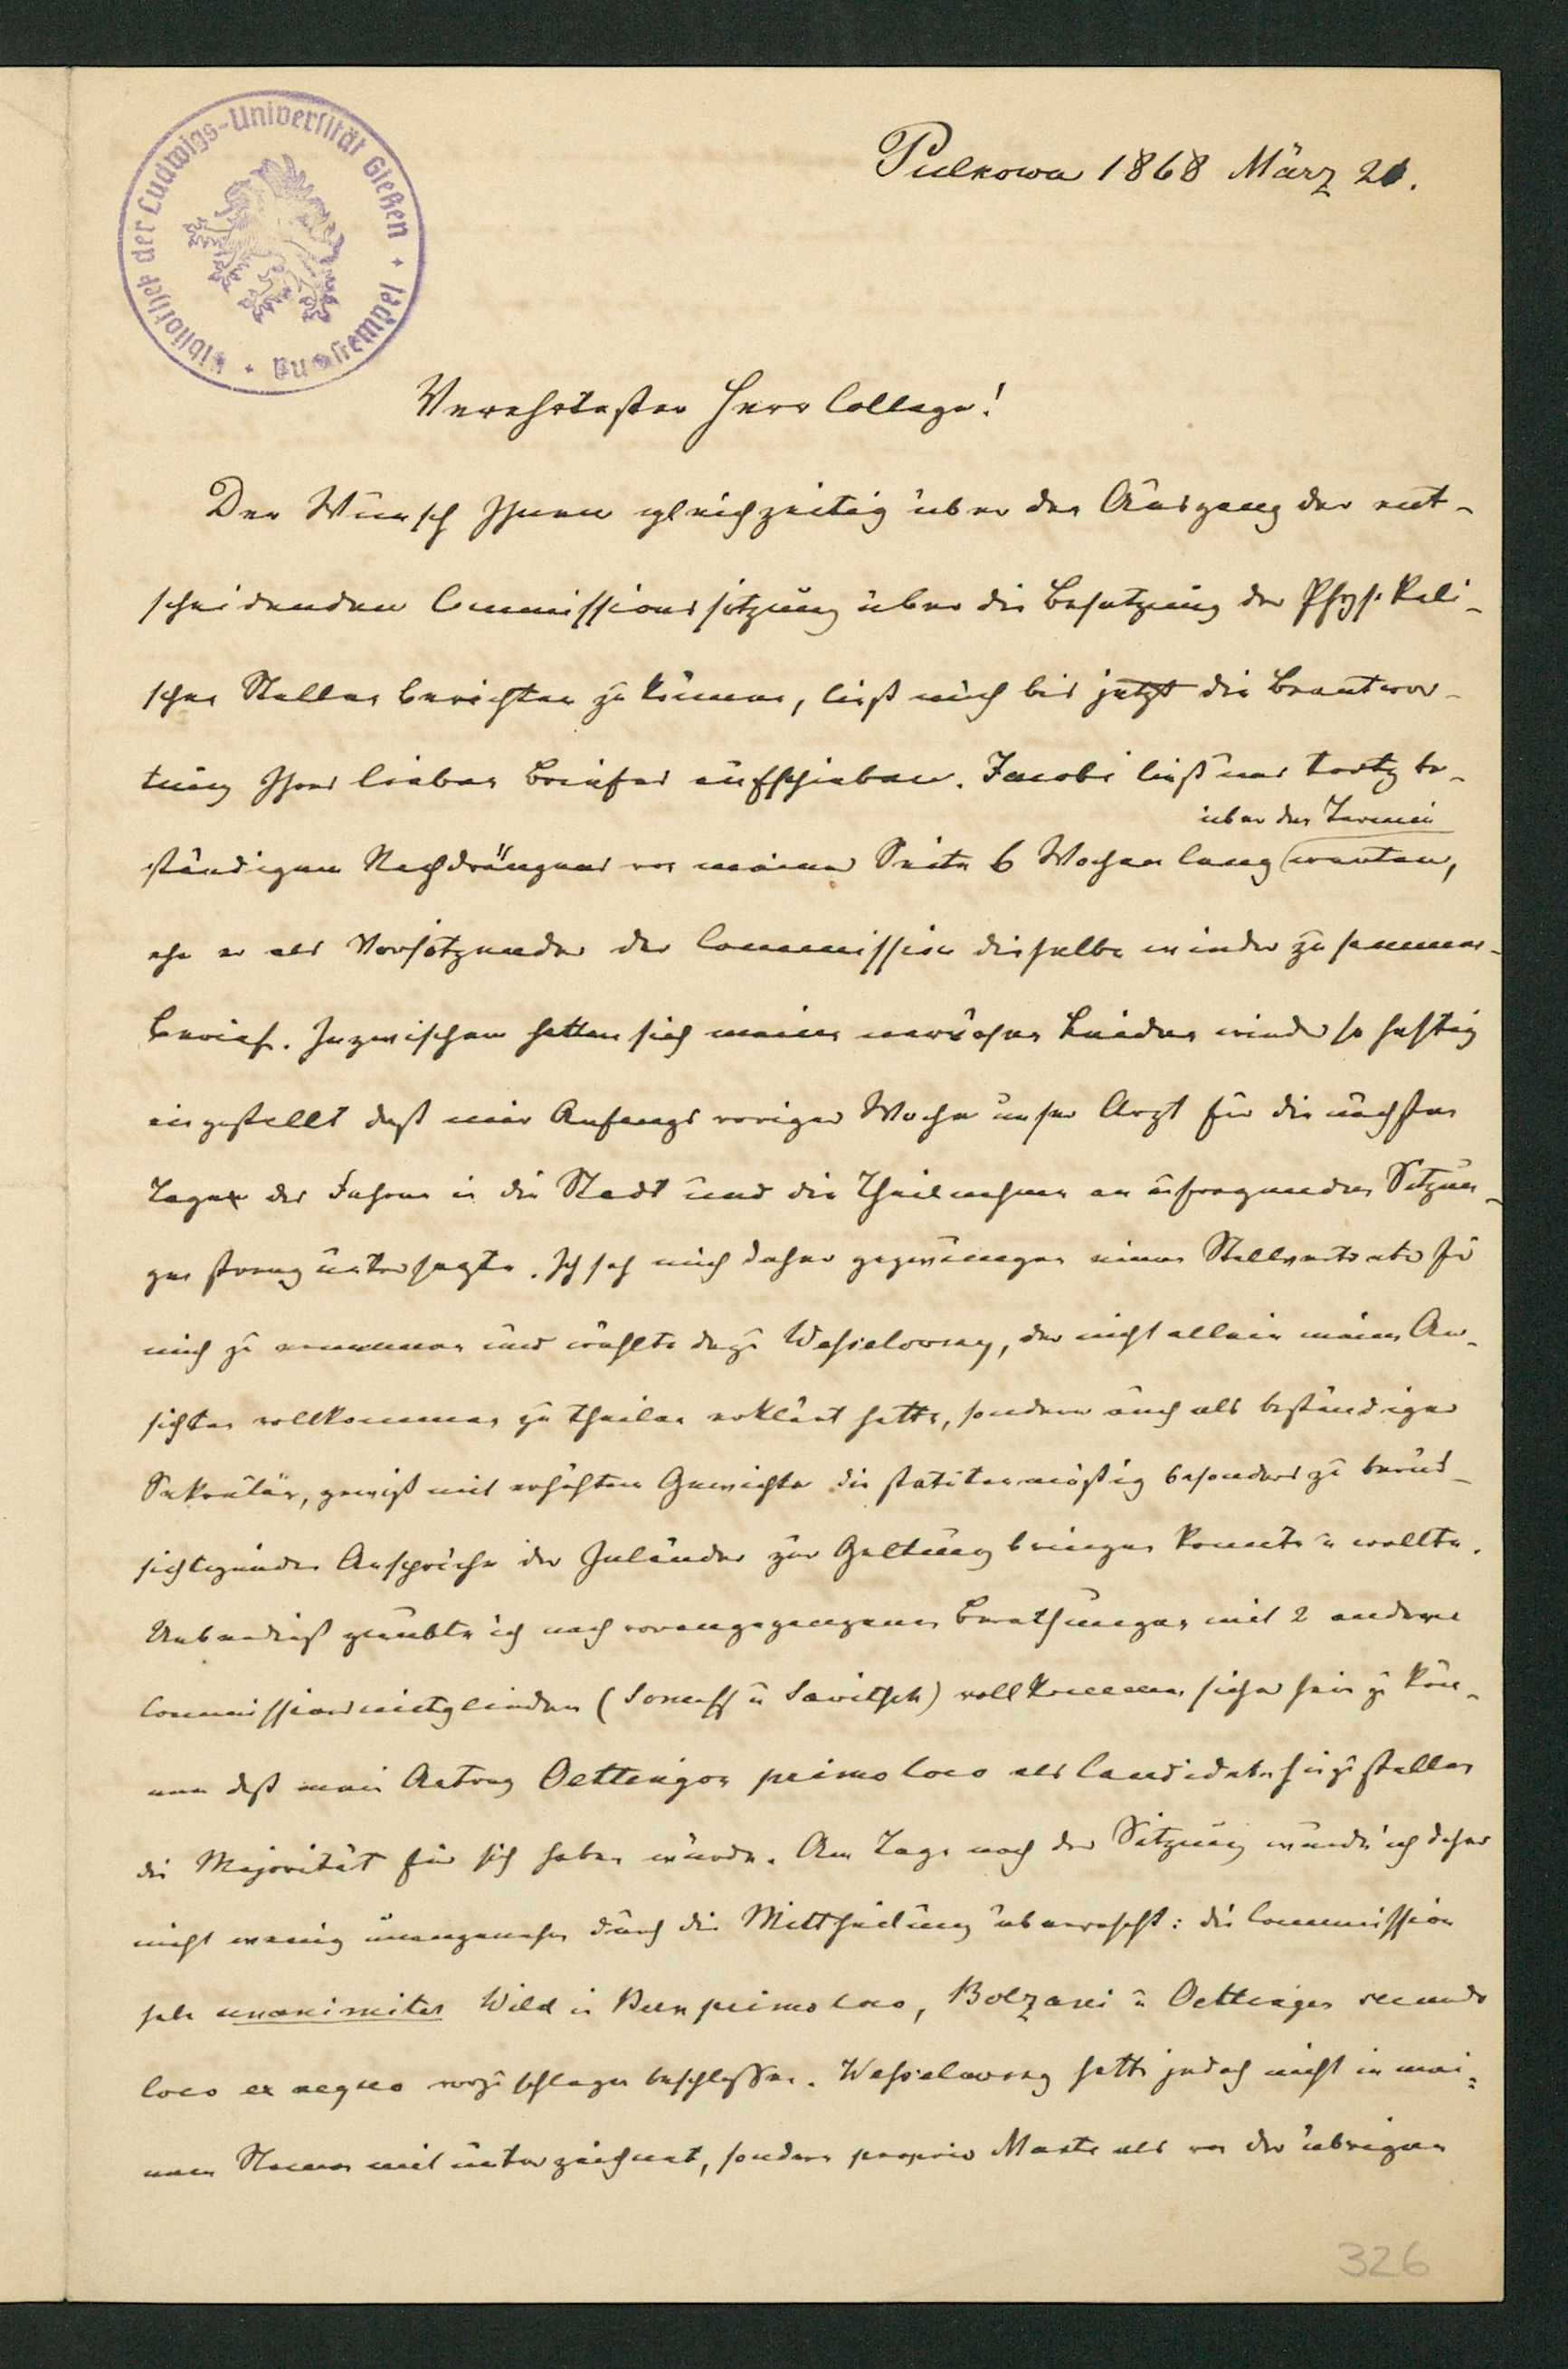 Bibliothek der Ludwigs-Universität Gießen
Pulkowa 1868 März 20.
Verehrtester Herr College!
Der Wunsch Ihnen gleichzeitig über den Ausgang der ent-
scheidenden Commissionssitzung über die Besetzung der Physikali-
schen Stelle berichten zu können, ließ mich bis jetzt die Beantwor-
tung Ihres lieben Briefes aufschieben. Jacobi ließ uns trotz be-
über den Termin
ständigen Nachdrängens von meiner Seite 6 Wochen lang warten,
ehe er als Vorsitzender der Commission dieselbe wieder zusammen-
berief. Inzwischen hatten sich meine nervösen Leiden wieder so heftig
eingestellt daß mir Anfangs voriger Woche unser Arzt für die nächsten
Tage das Fahren in die Stadt und die Theilnahme an aufregenden Sitzun-
gen streng untersagte. Ich sah mich daher gezwungen einen Stellvertreter für
mich zu ernennen und wählte dazu Wesselowsky, der nicht allein meine An-
sichten vollkommen zu theilen erklärt hatte, sondern auch als beständiger
Sekretär, gewiß mit erhöhtem Gewichte die statutenmäßig besonders zu berück-
sichtigenden Ansprüche der Inländer zur Geltung bringen konnte u wollte.
Ueberdieß glaubte ich nach vorangegangenen Berathungen mit 2 anderen
Commissionsmitgliedern (Somoff u Sawitsch) vollkommen sicher sein zu kön-
nen daß mein Antrag Oettingen primo loco als Candidaten hinzustellen
die Majorität für sich haben würde. Am Tage nach der Sitzung wurde ich daher
nicht wenig unangenehm durch die Mittheilung überrascht: die Commission
habe unanimiter Wild in Bern primo loco, Bolzani u Oettingen secundo
loco ex aequo vorzuschlagen beschlossen. Wesselowsky hatte jedoch nicht in mei-
nem Namen mit unterzeichnet, sondern proprio Marte als von den übrigen
326